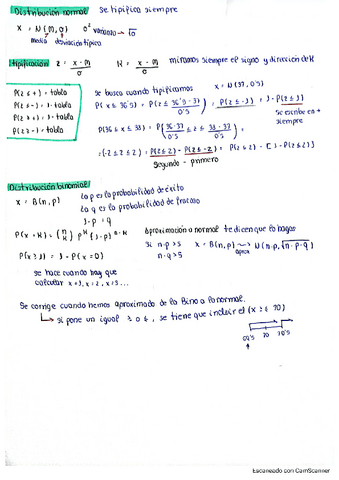 Distribución normal  se tipifica siempre
X = N(m, σ)  σ² varianza → √σ
media  desviación típica
tipificación  z = x - m / σ  K = x - m / σ  miramos siempre el signo y dirección de K
P(z ≤ +) = tabla
P(z ≤ -) = 1 - tabla
P(z ≥ +) = 1 - tabla
P(z ≥ -) = tabla
se busca cuando tipificamos  X = N(37, 0'5)
P(x ≤ 36'5) = P(z ≤ 36'5 - 37 / 0'5) = P(z ≤ -1) = 1 - P(z ≤ 1)
se escribe en + siempre
P(36 ≤ x ≤ 38) = P(36 - 37 / 0'5 ≤ z ≤ 38 - 37 / 0'5)
= (-2 ≤ z ≤ 2) = P(z ≤ 2) - P(z ≤ -2) = P(z ≤ 2) - [1 - P(z ≤ 2)]
segundo - primero
Distribución binomial
X = B(n, p)  La p es la probabilidad de éxito
La q es la probabilidad de fracaso
1 - p = q
P(x = K) = (n K) p^K (1 - p)^n-K
Aproximación a normal  te dicen que lo hagas
Si n·p > 5  X = B(n, p) → N(n·p, √n·p·q)
n·q > 5  aprox
P(x ≥ 1) = 1 - P(x = 0)
se hace cuando hay que
calcular x = 1, x = 2, x = 3...
Se corrige cuando hemos aproximado de la Bino a la normal.
↳ si pone un igual ≥ o ≤, se tiene que incluir el (x ≥ 70)
69'5  70  70'5
Escaneado con CamScanner